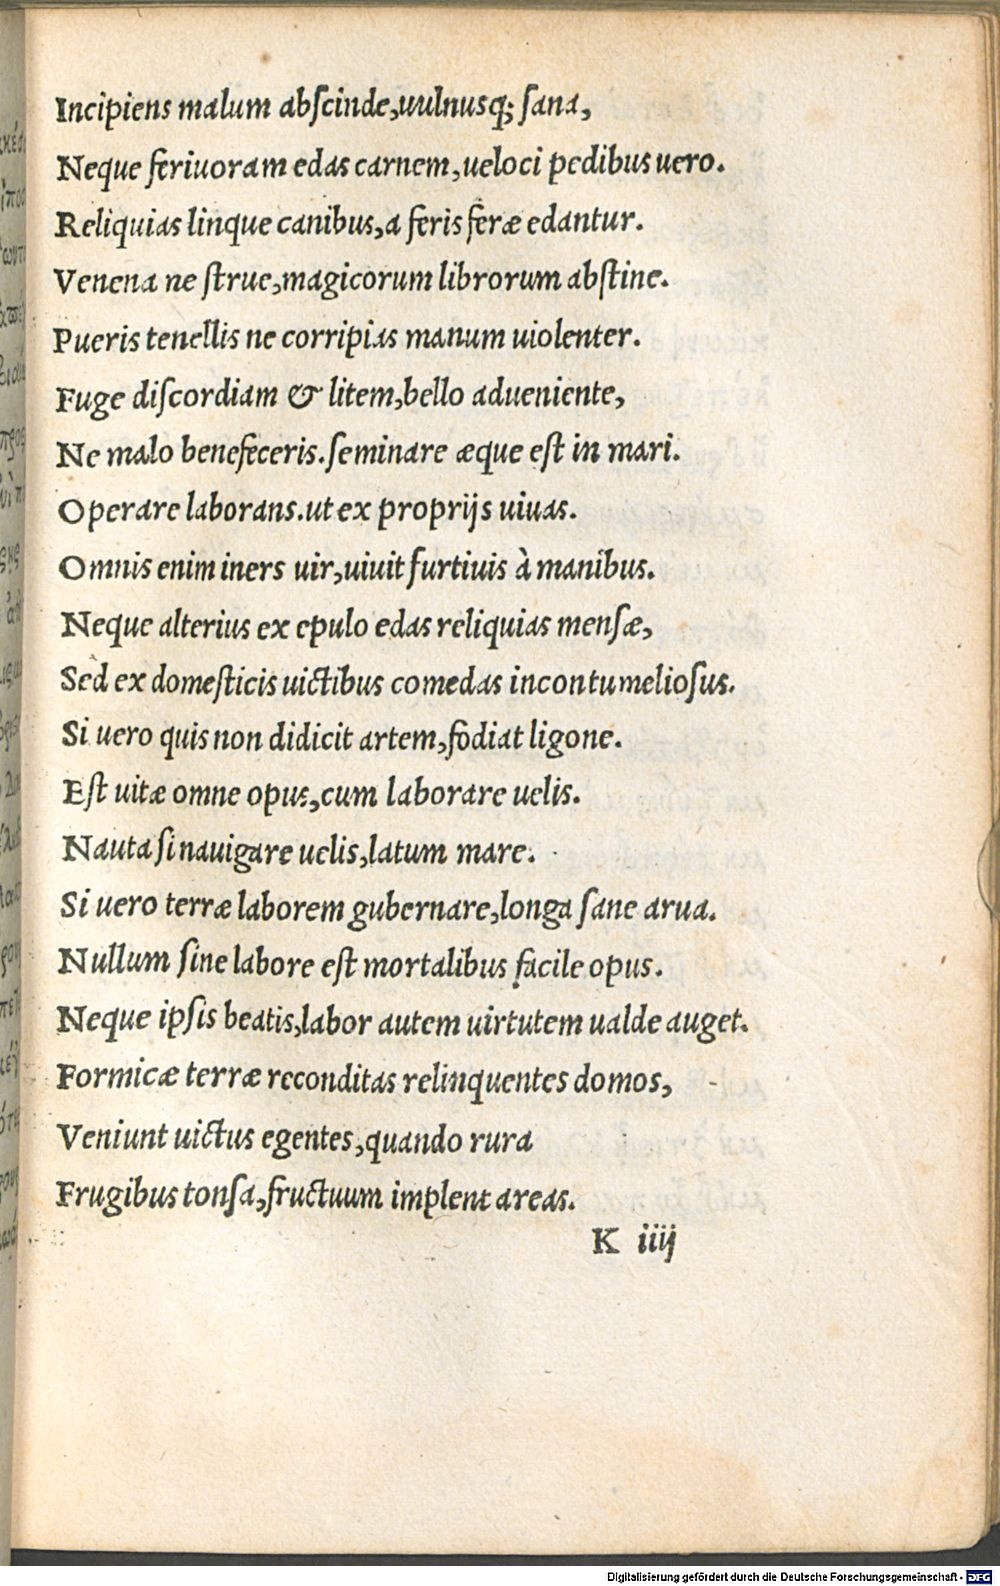 Incipiens malum abscinde,uulnusq; sana,
Neque feriuoram edas carnem,ueloci pedibus uero.
Reliquias linque canibus,a feris feræ edantur.
Venena ne strue,magicorum librorum abstine.
Pueris tenellis ne corripias manum uiolenter.
Fuge discordiam & litem,bello adueniente,
Ne malo benefeceris.seminare æque est in mari.
Operare laborans.ut ex proprijs uiuas.
Omnis enim iners uir,uiuit furtiuis à manibus.
Neque alterius ex epulo edas reliquias mensæ,
Sed ex domesticis uictibus comedas incontumeliosus.
Si uero quis non didicit artem,fodiat ligone.
Est uitæ omne opus,cum laborare uelis.
Nauta si nauigare uelis,latum mare.
Si uero terræ laborem gubernare,longa sane arua.
Nullum sine labore est mortalibus facile opus.
Neque ipsis beatis,labor autem uirtutem ualde auget.
Formicæ terræ reconditas relinquentes domos,
Veniunt uictus egentes,quando rura
Frugibus tonsa,fructuum implent areas.
K iiij
Digitalisierung gefördert durch die Deutsche Forschungsgemeinschaft - DFG